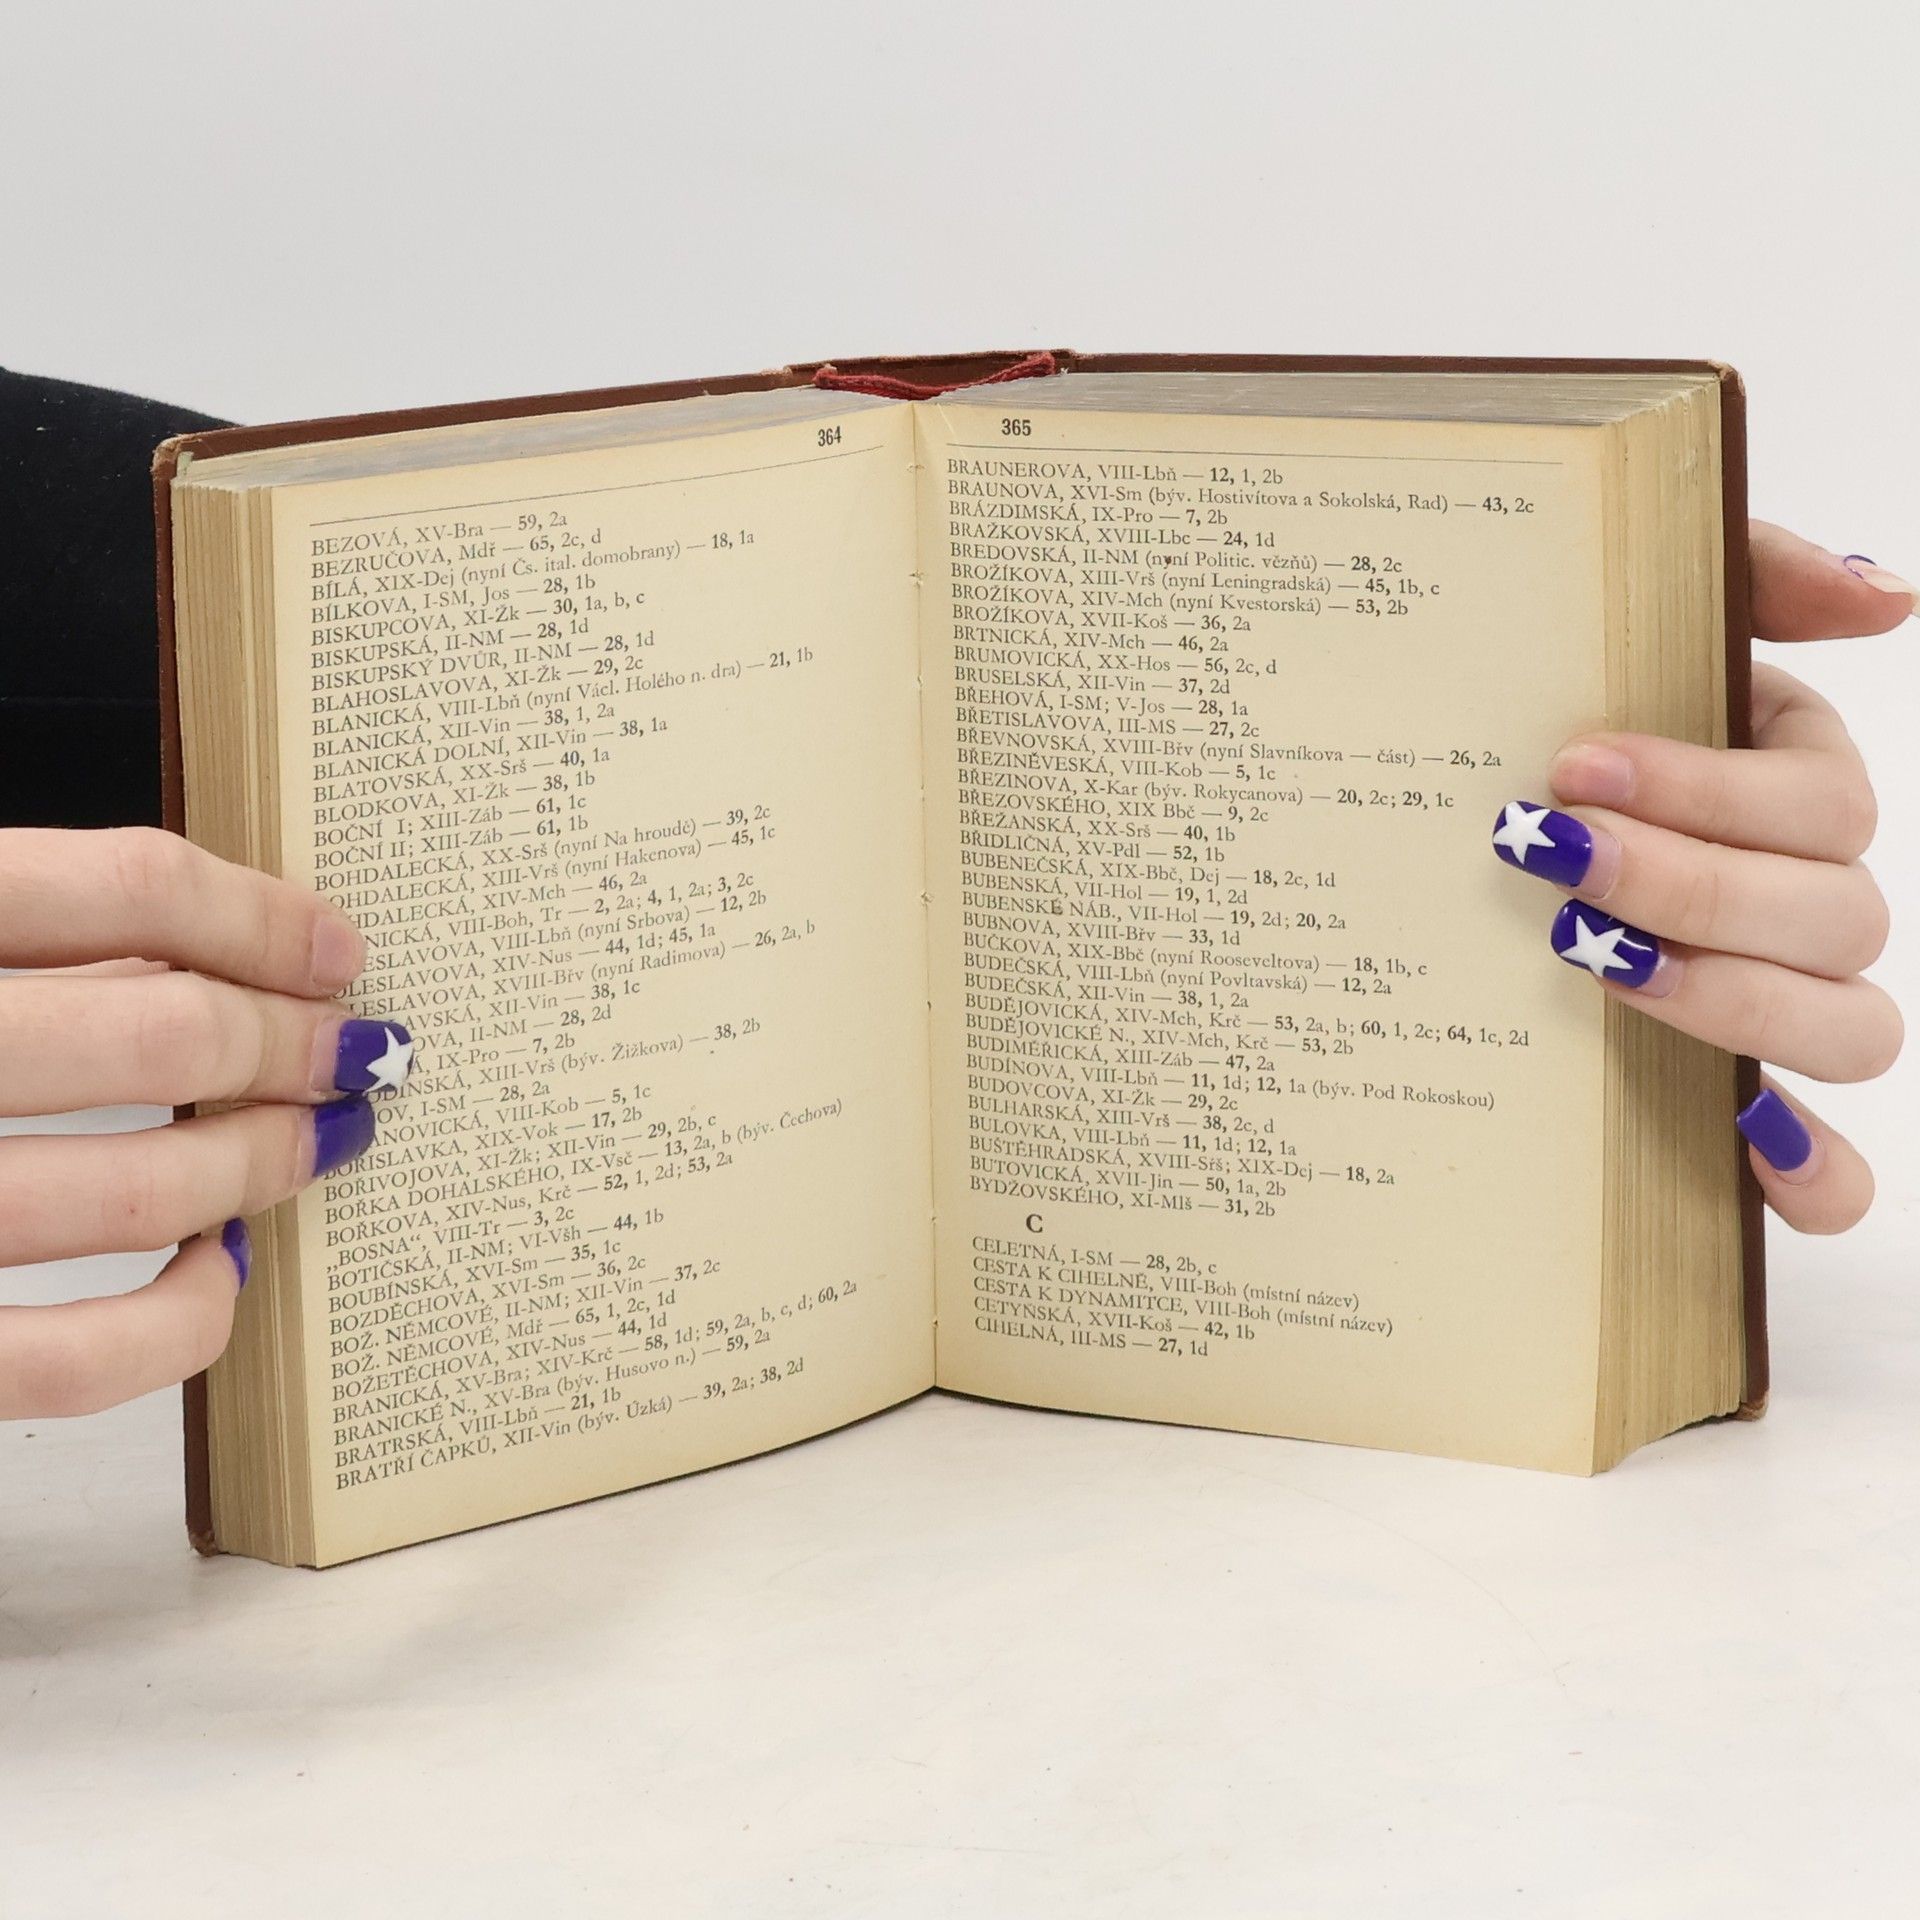 364
BEZOVÁ, XV-Bra — 59, 2a
BEZRUČOVA, Mdř — 65, 2c, d
BÍLÁ, XIX-Dej (nyní Čs. ital. domobrany) — 18, 1a
BÍLKOVA, I-SM, Jos — 28, 1b
BISKUPCOVA, XI-Žk — 30, 1a, b, c
BISKUPSKÁ, II-NM — 28, 1d
BISKUPSKÝ DVŮR, II-NM — 28, 1d
BLAHOSLAVOVA, XI-Žk — 29, 2c
BLANICKÁ, VIII-Lbň (nyní Václ. Holého n. dra) — 21, 1b
BLANICKÁ, XII-Vin — 38, 1, 2a
BLANICKÁ DOLNÍ, XII-Vin — 38, 1a
BLATOVSKÁ, XX-Srš — 40, 1a
BLODKOVA, XI-Žk — 38, 1b
BOČNÍ I; XIII-Záb — 61, 1c
BOČNÍ II; XIII-Záb — 61, 1b
BOHDALECKÁ, XX-Srš (nyní Na hroudě) — 39, 2c
OHDALECKÁ, XIII-Vrš (nyní Hakenova) — 45, 1c
HDALECKÁ, XIV-Mch — 46, 2a
NICKÁ, VIII-Boh, Tr — 2, 2a; 4, 1, 2a; 3, 2c
ESLAVOVA, VIII-Lbň (nyní Srbova) — 12, 2b
OLESLAVOVA, XIV-Nus — 44, 1d; 45, 1a
LESLAVOVA, XVIII-Břv (nyní Radimova) — 26, 2a, b
LAVSKÁ, XII-Vin — 38, 1c
OVA, II-NM — 28, 2d
Á, IX-Pro — 7, 2b
ODÍNSKÁ, XIII-Vrš (býv. Žižkova) — 38, 2b
OV, I-SM — 28, 2a
ANOVICKÁ, VIII-Kob — 5, 1c
BOŘISLAVKA, XIX-Vok — 17, 2b
BOŘIVOJOVA, XI-Žk; XII-Vin — 29, 2b, c
BOŘKA DOHALSKÉHO, IX-Vsč — 13, 2a, b (býv. Čechova)
BOŘKOVA, XIV-Nus, Krč — 52, 1, 2d; 53, 2a
„BOSNA“, VIII-Tr — 3, 2c
BOTIČSKÁ, II-NM; VI-Všh — 44, 1b
BOUBÍNSKÁ, XVI-Sm — 35, 1c
BOZDĚCHOVA, XVI-Sm — 36, 2c
BOŽ. NĚMCOVÉ, II-NM; XII-Vin — 37, 2c
BOŽ. NĚMCOVÉ, Mdř — 65, 1, 2c, 1d
BOŽETĚCHOVA, XIV-Nus — 44, 1d
BRANICKÁ, XV-Bra; XIV-Krč — 58, 1d; 59, 2a, b, c, d; 60, 2a
BRANICKÉ N., XV-Bra (býv. Husovo n.) — 59, 2a
BRATRSKÁ, VIII-Lbň — 21, 1b
BRATŘÍ ČAPKŮ, XII-Vin (býv. Úzká) — 39, 2a; 38, 2d
365
BRAUNEROVA, VIII-Lbň — 12, 1, 2b
BRAUNOVA, XVI-Sm (býv. Hostivítova a Sokolská, Rad) — 43, 2c
BRÁZDIMSKÁ, IX-Pro — 7, 2b
BRAŽKOVSKÁ, XVIII-Lbc — 24, 1d
BREDOVSKÁ, II-NM (nyní Politic. vězňů) — 28, 2c
BROŽÍKOVA, XIII-Vrš (nyní Leningradská) — 45, 1b, c
BROŽÍKOVA, XIV-Mch (nyní Kvestorská) — 53, 2b
BROŽÍKOVA, XVII-Koš — 36, 2a
BRTNICKÁ, XIV-Mch — 46, 2a
BRUMOVICKÁ, XX-Hos — 56, 2c, d
BRUSELSKÁ, XII-Vin — 37, 2d
BŘEHOVÁ, I-SM; V-Jos — 28, 1a
BŘETISLAVOVA, III-MS — 27, 2c
BŘEVNOVSKÁ, XVIII-Břv (nyní Slavníkova — část) — 26, 2a
BŘEZINĚVESKÁ, VIII-Kob — 5, 1c
BŘEZINOVA, X-Kar (býv. Rokycanova) — 20, 2c; 29, 1c
BŘEZOVSKÉHO, XIX Bbč — 9, 2c
BŘEŽANSKÁ, XX-Srš — 40, 1b
BŘIDLIČNÁ, XV-Pdl — 52, 1b
BUBENEČSKÁ, XIX-Bbč, Dej — 18, 2c, 1d
BUBENSKÁ, VII-Hol — 19, 1, 2d
BUBENSKÉ NÁB., VII-Hol — 19, 2d; 20, 2a
BUBNOVA, XVIII-Břv — 33, 1d
BUČKOVA, XIX-Bbč (nyní Rooseveltova) — 18, 1b, c
BUDEČSKÁ, VIII-Lbň (nyní Povltavská) — 12, 2a
BUDEČSKÁ, XII-Vin — 38, 1, 2a
BUDĚJOVICKÁ, XIV-Mch, Krč — 53, 2a, b; 60, 1, 2c; 64, 1c, 2d
BUDĚJOVICKÉ N., XIV-Mch, Krč — 53, 2b
BUDIMĚŘICKÁ, XIII-Záb — 47, 2a
BUDÍNOVA, VIII-Lbň — 11, 1d; 12, 1a (býv. Pod Rokoskou)
BUDOVCOVA, XI-Žk — 29, 2c
BULHARSKÁ, XIII-Vrš — 38, 2c, d
BULOVKA, VIII-Lbň — 11, 1d; 12, 1a
BUŠTĚHRADSKÁ, XVIII-Sřš; XIX-Dej — 18, 2a
BUTOVICKÁ, XVII-Jin — 50, 1a, 2b
BYDŽOVSKÉHO, XI-Mlš — 31, 2b
C
CELETNÁ, I-SM — 28, 2b, c
CESTA K CIHELNĚ, VIII-Boh (místní název)
CESTA K DYNAMITCE, VIII-Boh (místní název)
CETYŇSKÁ, XVII-Koš — 42, 1b
CIHELNÁ, III-MS — 27, 1d